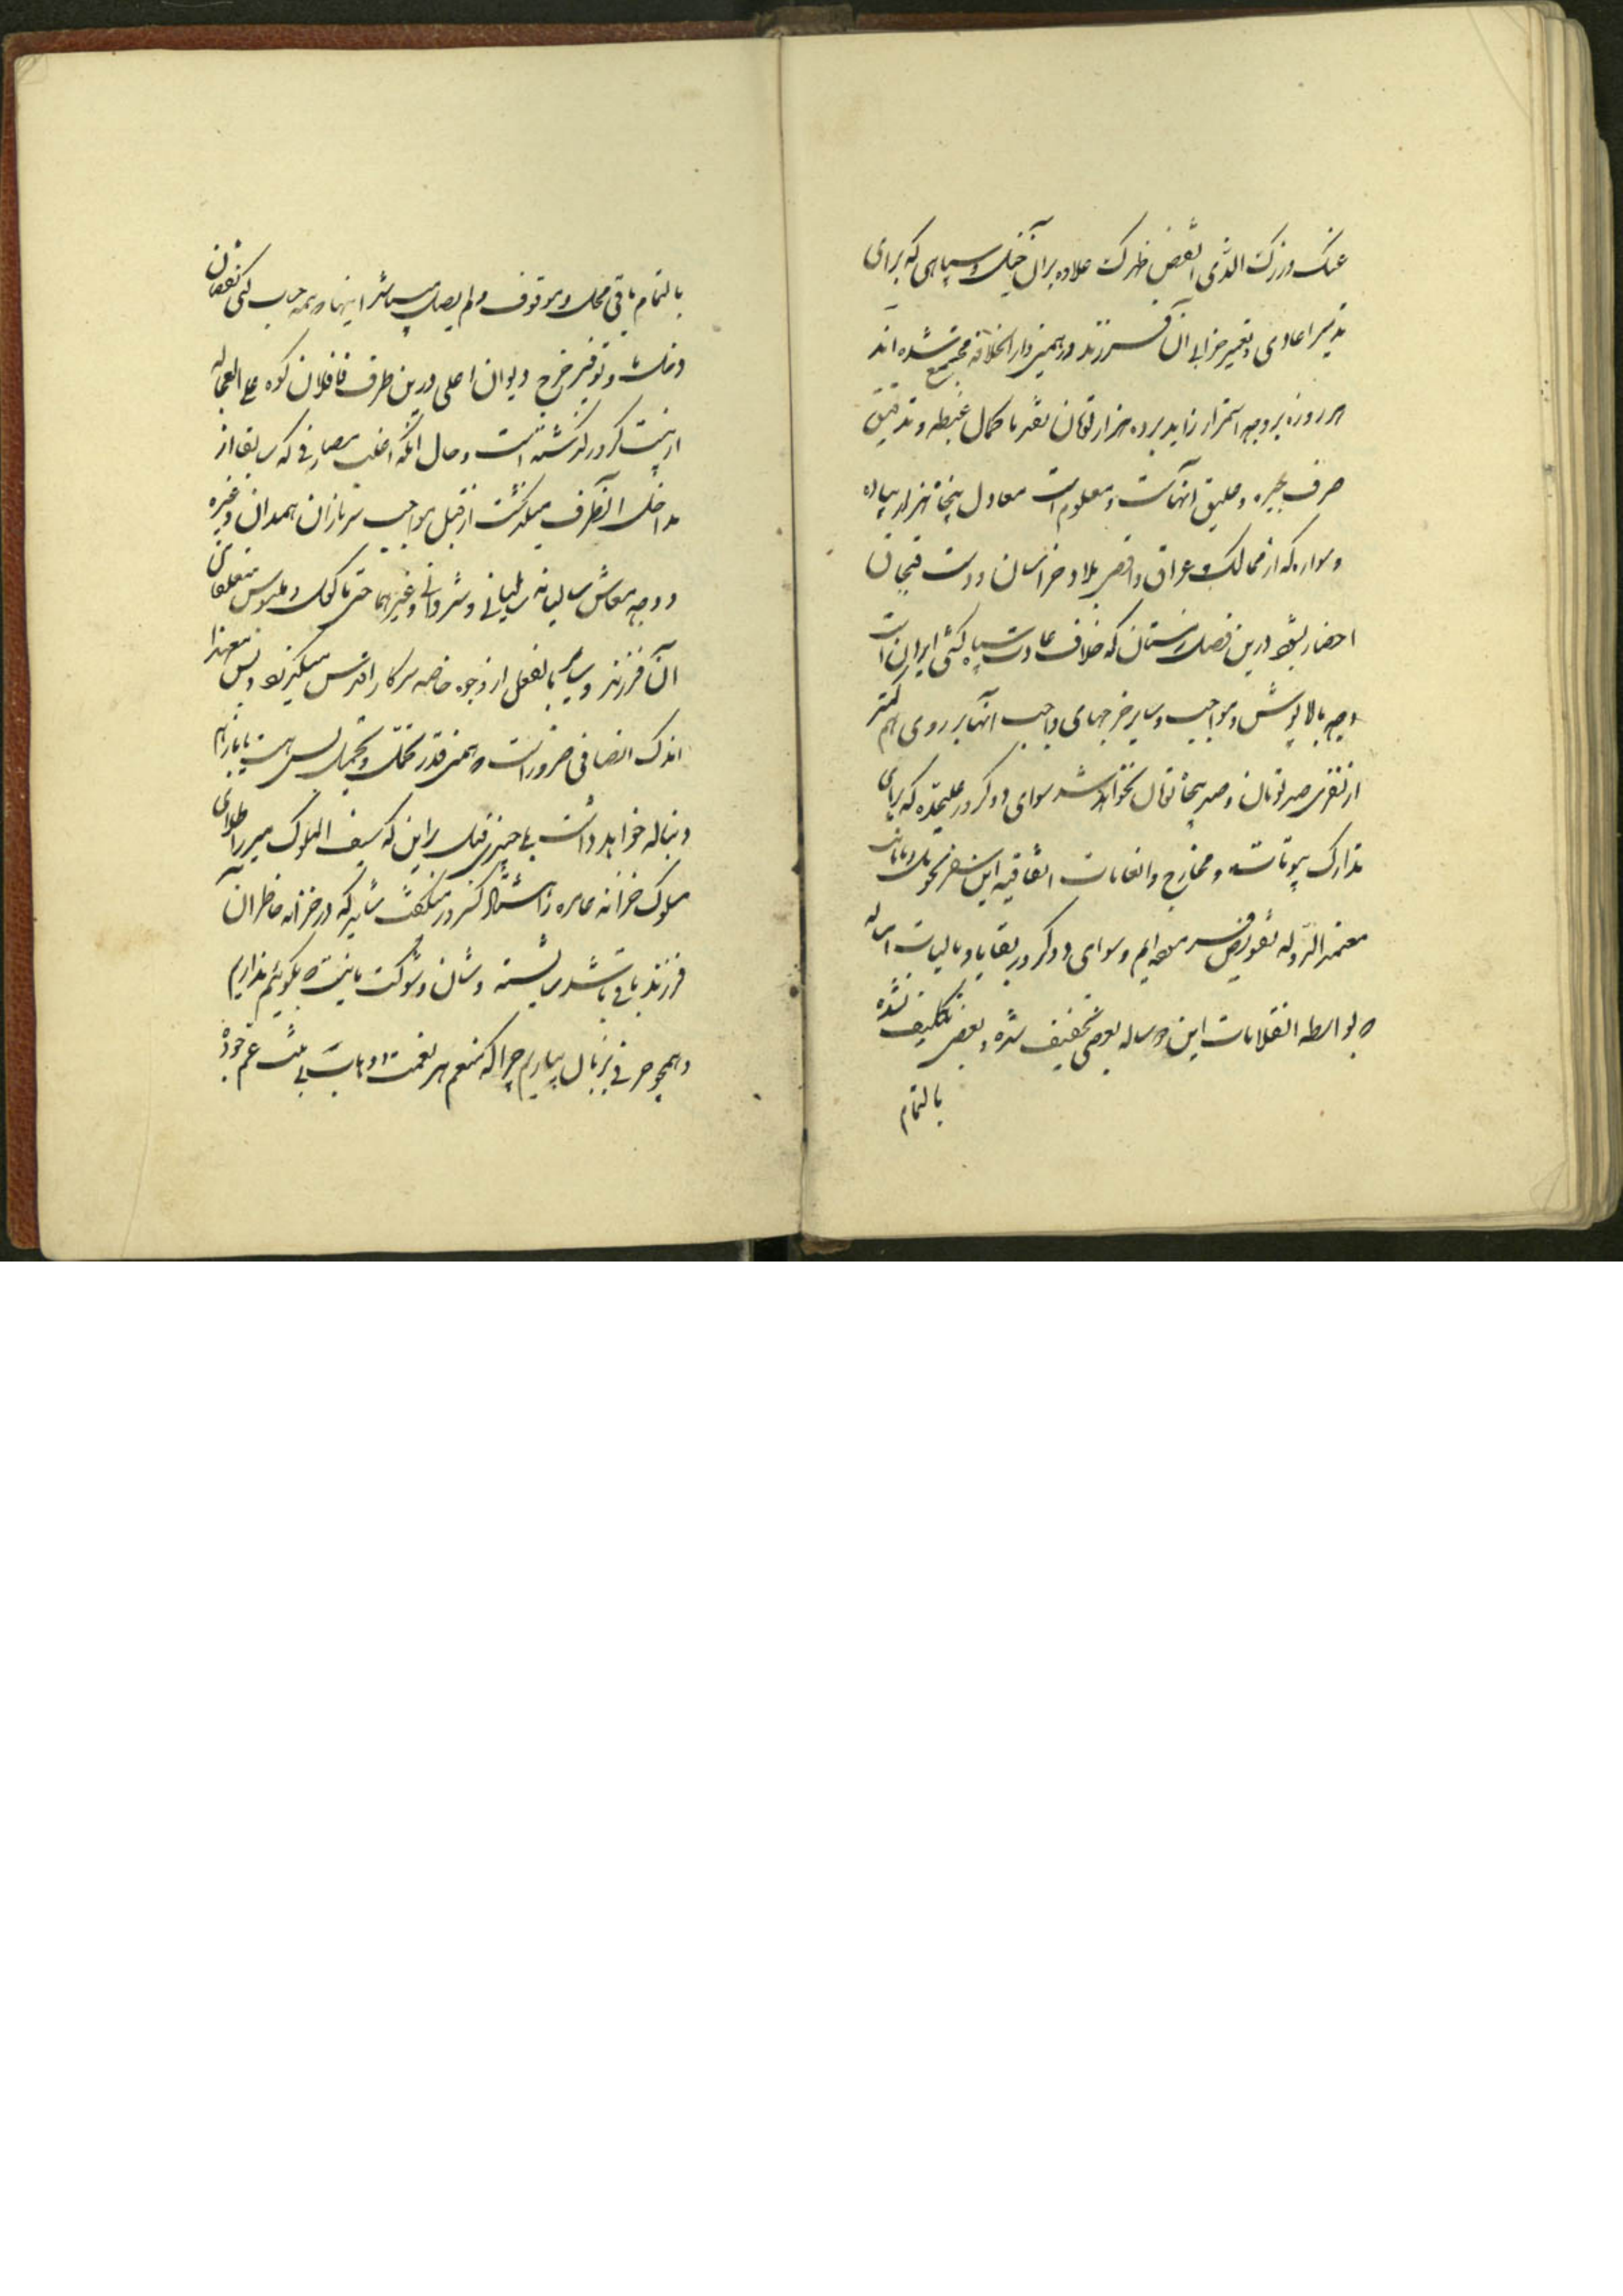 عنک وزرک الذی انقض ظهرک علاوه بر آن جیک و سپاهی که برای
تدمیر اعادی و تعمیر خرابی آن فرزند در همین دار الخلافه مجتمع شده‌اند
هر روزه بر وجه استمرار زاید بر ده هزار تومان نقد با کمال غبطه و تدقیق
صرف جیره و علیق آنهاست و معلوم است معادل پنجاه هزار پیاده
و سواره که از ممالک عراق و اقصی بلاد خراسان و دشت قبچاق
احضار بشود درین فصل زمستان که خلاف عادت سپاه کشی ایران است
وجه بالاپوش و مواجب و سایر خرجهای واجب آنها بر روی هم کمتر
از نفری صد تومان و صد پنجاه تومان نخواهد شد سوای دو کرور علیحده که برای
تدارک بیوتات و مخارج و انعامات اتفاقیه این سفر تحویل
معتمد الدوله تفویض فرموده‌ایم و سوای دو کرور بقایا و مالیات امساله
که بواسطه انقلابات این دو ساله بعضی تخفیف شده و بعضی تکلیف نشده
بالتمام
بالتمام باقی محل و موقوف و لم یصل میباشد اینها همه حساب کنی نقصان
دخل و توفیر خرج دیوان اعلی درین طرف قافلان کوه علی العجاله
از بیست کرور گذشته است و حال آنکه اغلب مصارفی که سابقا از
مداخل آنطرف میگذشت از قبیل مواجب سربازان همدان و غیره
و وجه معاش سالیانه طلیانی و شروانی و غیرهما حتی ماکول و ملبوس متعلقان
آن فرزند و سایر بالفعل از وجوه خاصه سرکار اقدس میگیرند و بس معهذا
اندک انصافی ضرور است که همین قدر تحمل و تحمیل بس است یا باز هم
دنباله خواهد داشت با چیزی قبل از این که سیف الملوک میرزا طلای
ملوک خزانه عامره را شتر کرور میگفت شاید که در خزانه خاطر آن
فرزند باقی باشد شایسته و شان و شوکت ما نیست که بگوئیم نداریم
و همچو حرفی بزبان بیاریم چرا که منعم هر نعمت داده است بی منت غم خود